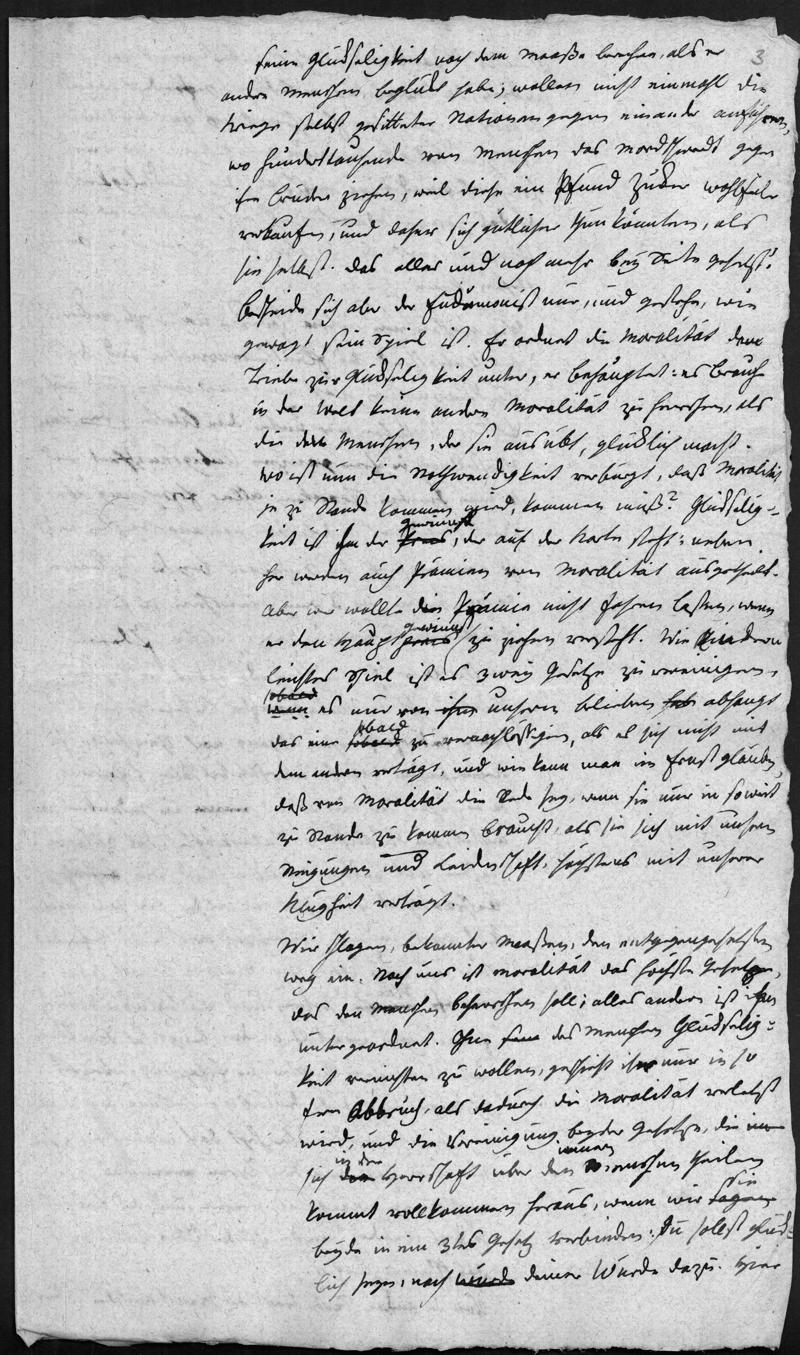 3
seine Glükseligkeit nach dem Maaße berechne, als er
andre Menschen beglükt habe; wollen nicht einmahl die
Kriege selbst gesitteter Nationen gegen einander anführen,
wo Hunderttausende von Menschen das Mordschwerdt gegen
ihre Brüder ziehen, weil diese ein Pfund Zucker wohlfeiler
verkaufen, und daher sich gütlicher thun könnten, als
sie selbst. Das alles und noch mehr bey Seite gesetzt!
bescheide sich aber der Eudämonist nur, und gestehe, wie
gewagt sein Spiel ist. Er ordnet die Moralität dem
Triebe zur Glükseligkeit unter, er behauptet: es brauche
in der Welt keine andere Moralität zu herrschen, als
die den Menschen, der sie ausübt, glüklich macht.
Wo ist nun die Nothwendigkeit verbürgt, daß Moralität
je zu Stande kommen wird, kommen muß? Glükselig-
keit ist ihm der Preis gewinnst, der auf der Karte steht: neben
her werden auch Prämien von Moralität ausgetheilt.
Aber wer wollte die Prämie nicht fahren lassen, wenn
er den Haupt preis gewinnst zu ziehen versteht. Wie ein
leichtes Spiel ist es zwey Gesetze zu vereinigen,
wenn sobald es nur von ihm unserm belieben abhängt
das eine sobald zu vernachlässigen, als es sich nicht mit
dem andern verträgt, und wie kann man im Ernst glauben,
daß von Moralität die Rede sey, wenn sie nur in soweit
zu Stande zu kommen braucht, als sie sich mit unsern
Neigungen und Leidenschaft, höchstens mit unserer
Klugheit verträgt.
Wir schlagen, bekannter Maaßen, den entgegengesetzten
Weg ein. Nach uns ist Moralität das höchste Gesetz,
das den Menschen beherrschen soll; alles andere ist ihm
untergeordnet. Ohne des Menschen Glükselig-
keit vernichten zu wollen, geschieht ihr nur in so
fern Abbruch, als dadurch die Moralität verletzt
wird, und die Vereinigung beyder Gesetze, die
sich in die Herrschaft über den innern Menschen theilen
kommt vollkommen heraus, wenn wir sie
beyde in ein 3tes Gesetz verbinden: Du sollst glük-
lich seyn, nach deiner Würde dazu. Hier